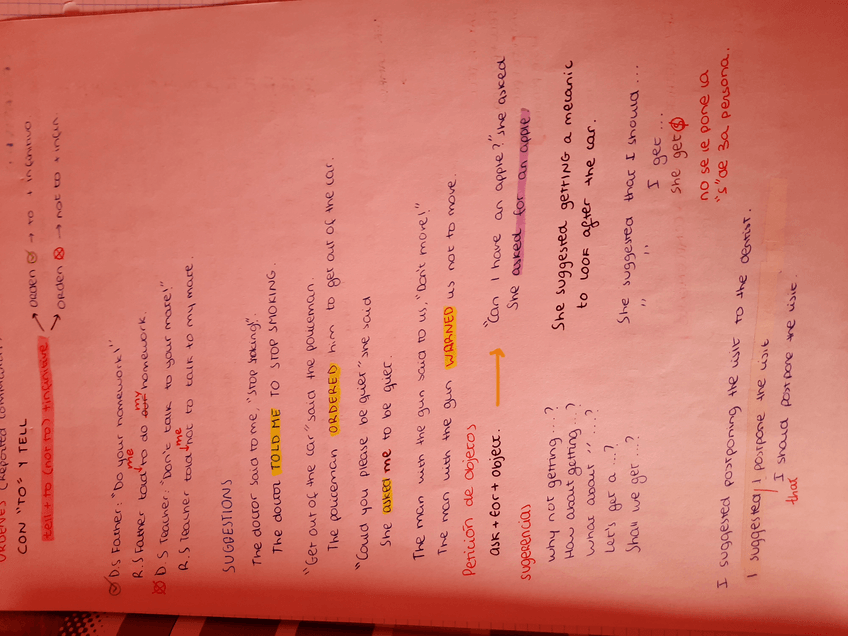 ÓRDENES (Reported commands)
CON "TO" Y TELL
tell + to (not to) + infinitive → orden → to + infinitivo
→ orden → not to + infin.
D.S Father: "Do your homework!"
R.S Father told me to do my homework.
D.S Trainer: "Don't talk to your mate!"
R.S Trainer told me not to talk to my mate.
SUGGESTIONS
The doctor said to me, "Stop smoking".
The doctor TOLD ME TO STOP SMOKING.
"Get out of the car" said the policeman.
The policeman ORDERED him to get out of the car.
"Could you please be quiet" she said
She asked me to be quiet.
The man with the gun said to us, "Don't move!"
The man with the gun WARNED us not to move.
Petición de objetos
ask + for + object. → "Can I have an apple?" she asked
She asked for an apple.
sugerencias
Why not getting...?
How about getting...?
What about " ...?
Let's get a ...?
Shall we get ...?
She suggested GETTING a mecanic
to LOOK after the car.
She suggested that I should ...
" " I get ...
She get
no se le pone la
"s" de 3a persona.
I suggested postponing the visit to the dentist.
I suggested I postpone the visit
that I should postpone the visit.